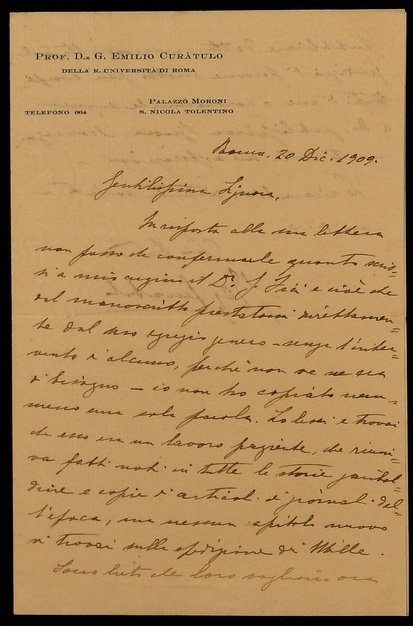 PROF. D.R G. EMILIO CURÀTULO
DELLA R. UNIVERSITÀ DI ROMA
PALAZZO MORONI
TELEFONO 664 S. NICOLA TOLENTINO
Roma, 20 Dic. 1909.
Gentilissima Signora,
In risposta alla sua lettera
non posso che confermarle quanto scris-
si a mio cugino il Dr. J. e cioè che
dal manoscritto prestatomi direttamen-
te dal suo egregio genero – senza l'inter-
vento d'alcuno, perchè non ve ne era
di bisogno – io non ho copiato nem-
meno una sola parola. Lo lessi e trovai
che esso era un lavoro paziente, che riuni-
va fatti noti in tutte le storie garibal-
dine e copie d'articoli di giornali del-
l'epoca; ma nessun capitolo nuovo
vi trovai sulla spedizione dei Mille.
Sono lieto che loro vogliano ora